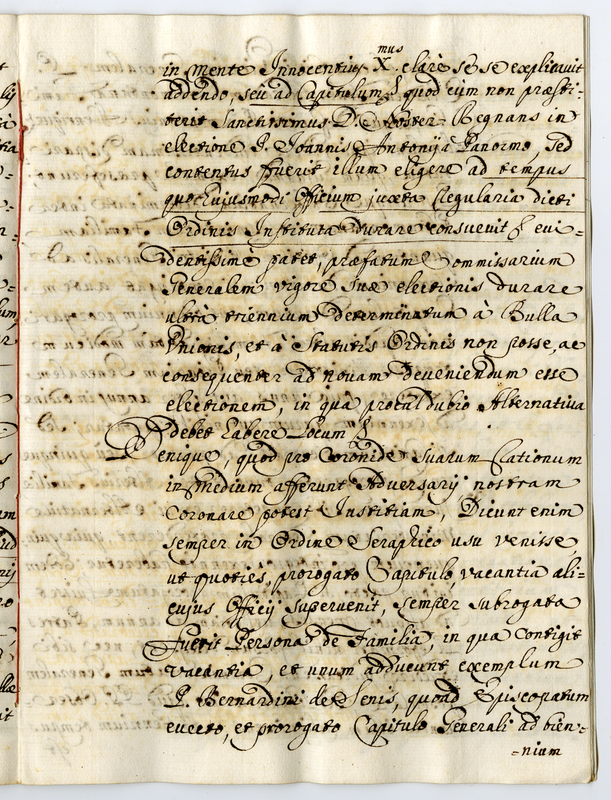 in mente Innocentius X.mus clarè se se explicavit
addendo, seu ad Capitulum, quod cum non præsti-
terit Sanctissimus D. Noster Regnans in
electione P. Joannis Antonij a Panormo, sed
contentus fuerit illum eligere ad tempus
quo hujusmodi Officium juxta Regularia dicti
Ordinis Instituta durare consuevit evi-
dentissime patet, præfatum Commissarium
Generalem vigore suæ electionis durare
ultrà triennium determinatum à Bulla
Unionis, et à Statutis Ordinis non posse, ac
consequenter ad novam deveniendum esse
electionem, in qua procul dubio Alternativa
debet habere Locum
Denique, quod pro Coronide suarum
in medium afferunt Adversarij nostram
Coronare potest Justitiam, Dicunt enim
semper in Ordine Seraphico usu venisse,
ut quoties, prorogato Capitulo, vacantia ali-
cujus Officij supervenit, semper subrogata
fuerit Persona de Familia, in qua contigit
vacantia, et unum adducunt exemplum
P. Bernardini de Senis, quoad Episcopatum
evecto, et prorogato Capitulo Generali ad bien-
-nium